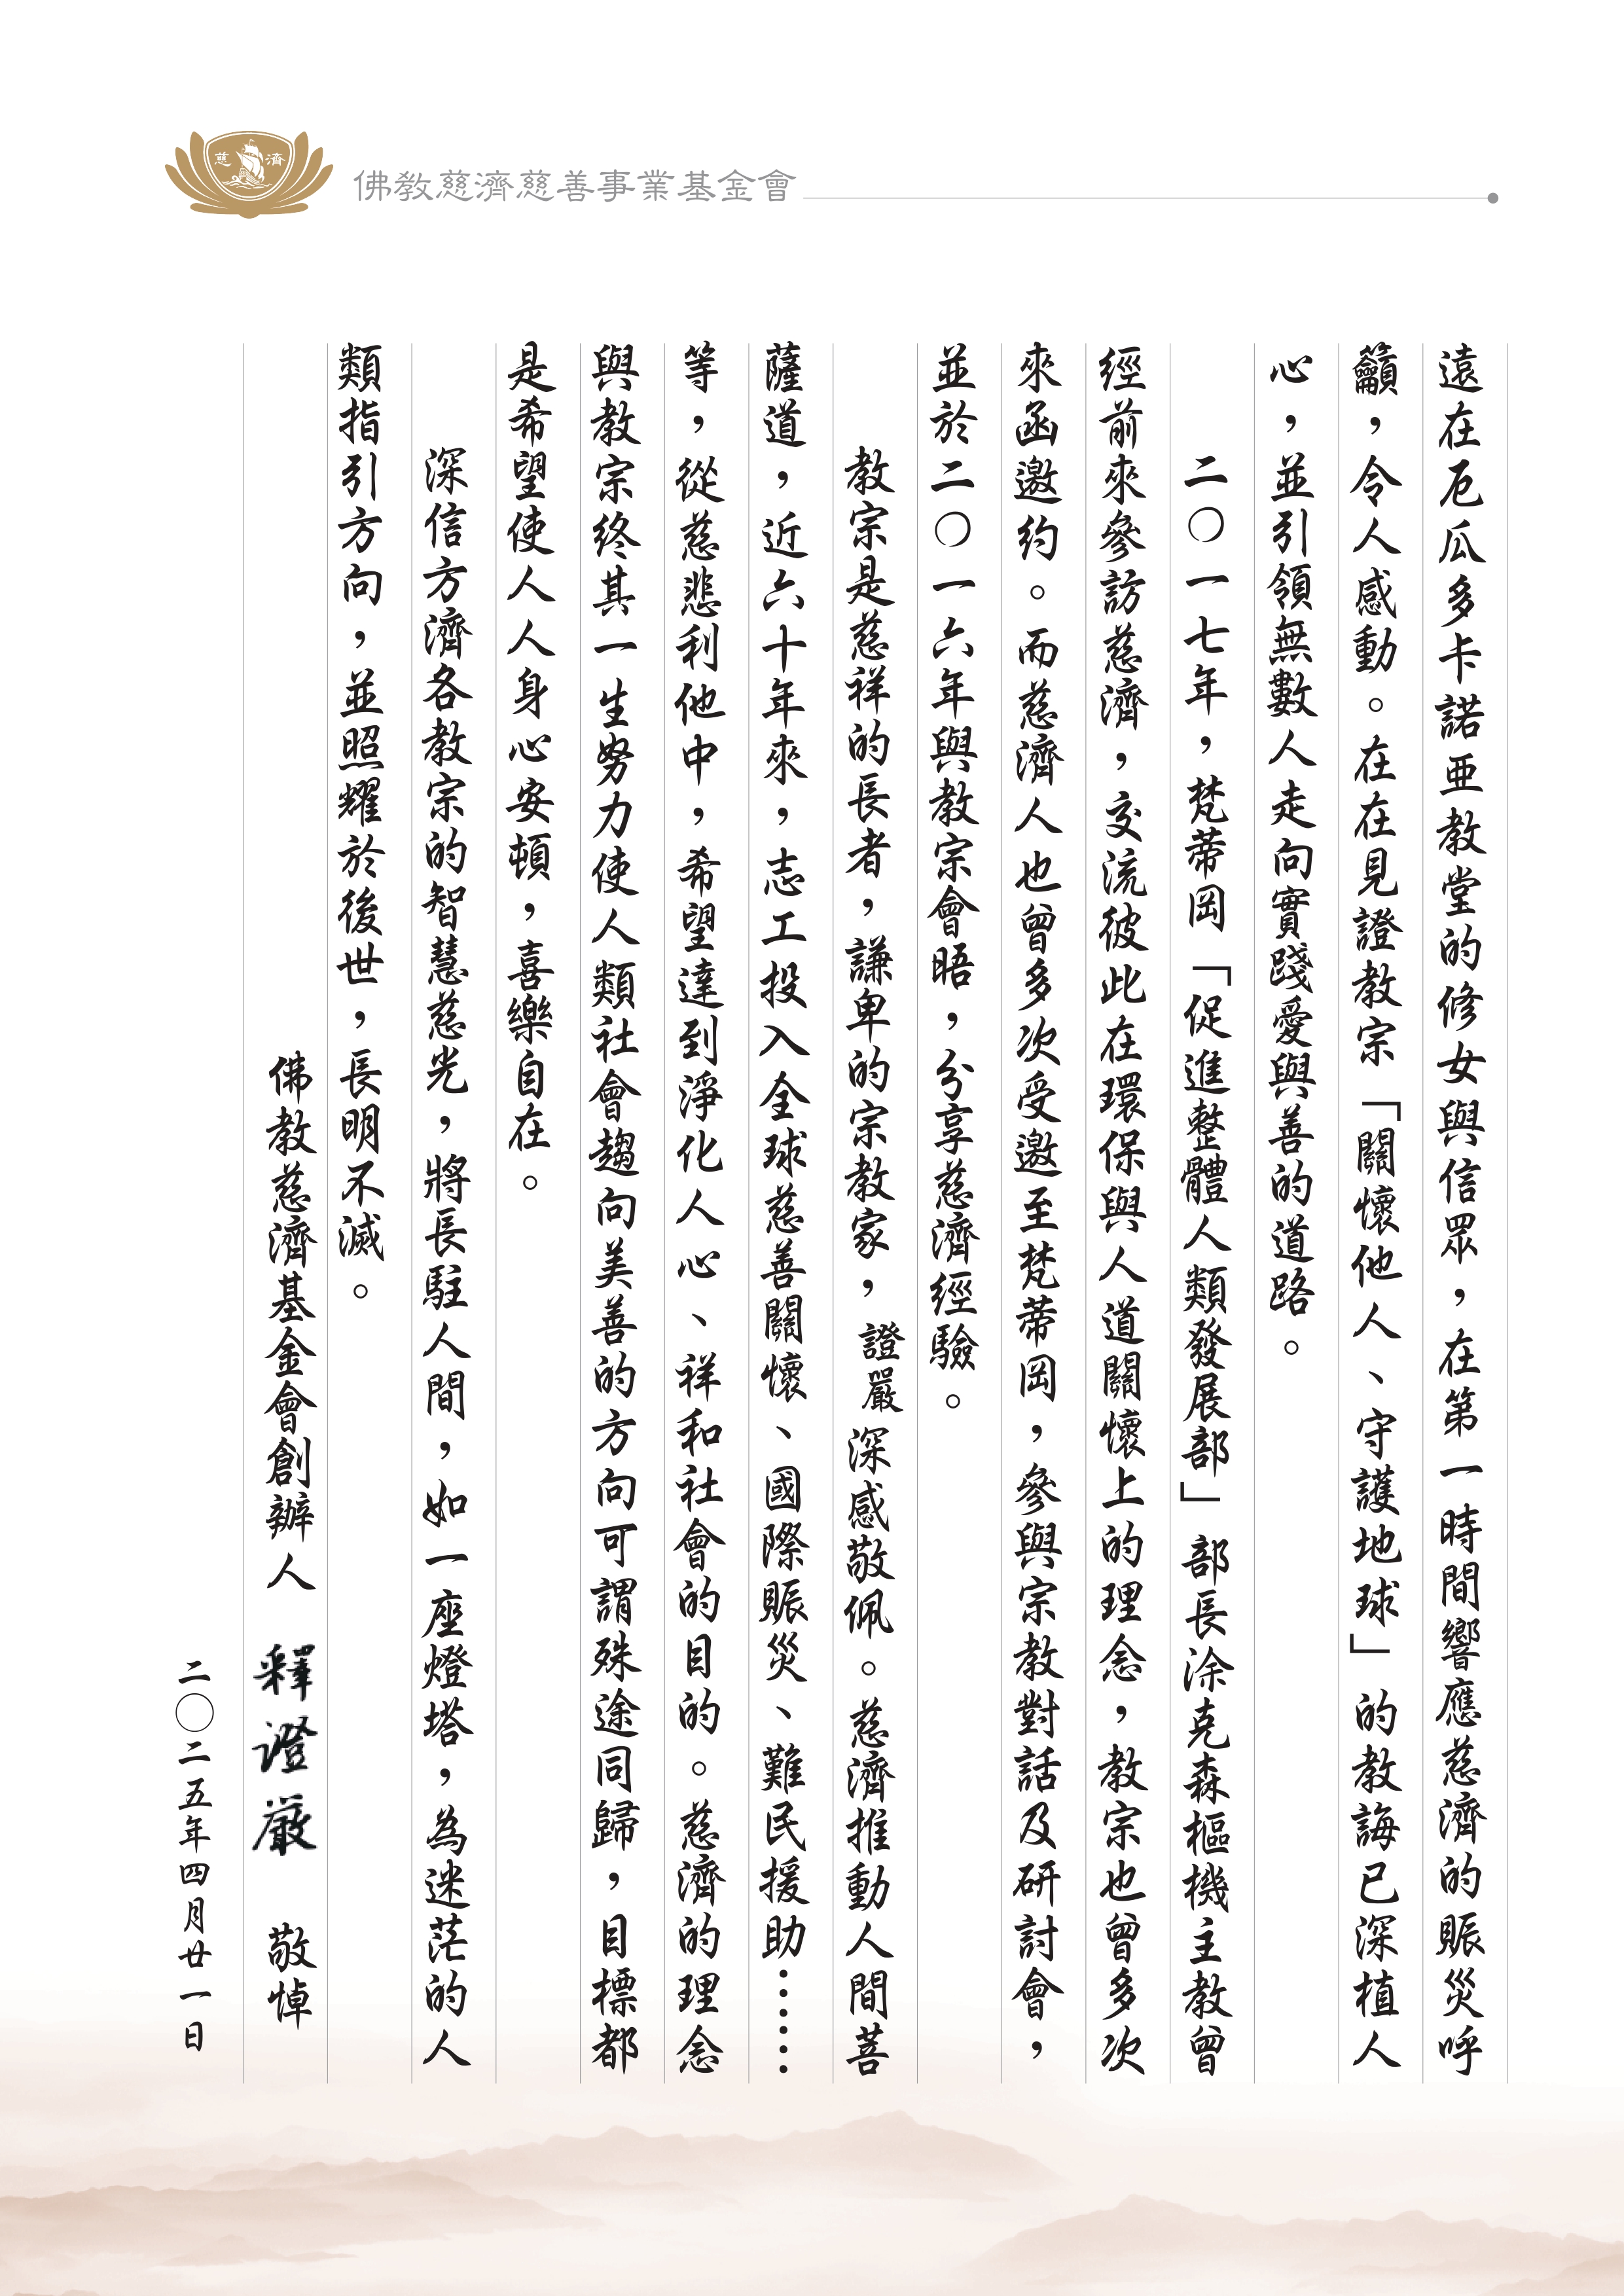 慈濟
佛教慈濟慈善事業基金會
遠在厄瓜多卡諾亞教堂的修女與信眾，在第一時間響應慈濟的賑災呼
籲，令人感動。在在見證教宗「關懷他人、守護地球」的教誨已深植人
心，並引領無數人走向實踐愛與善的道路。
二〇一七年，梵蒂岡「促進整體人類發展部」部長涂克森樞機主教曾
經前來參訪慈濟，交流彼此在環保與人道關懷上的理念，教宗也曾多次
來函邀約。而慈濟人也曾多次受邀至梵蒂岡，參與宗教對話及研討會，
並於二〇一六年與教宗會晤，分享慈濟經驗。
教宗是慈祥的長者，謙卑的宗教家，證嚴深感敬佩。慈濟推動人間菩
薩道，近六十年來，志工投入全球慈善關懷、國際賑災、難民援助……
等，從慈悲利他中，希望達到淨化人心、祥和社會的目的。慈濟的理念
與教宗終其一生努力使人類社會趨向美善的方向可謂殊途同歸，目標都
是希望使人人身心安頓，喜樂自在。
深信方濟各教宗的智慧慈光，將長駐人間，如一座燈塔，為迷茫的人
類指引方向，並照耀於後世，長明不滅。
佛教慈濟基金會創辦人 釋證嚴 敬悼
二〇二五年四月廿一日